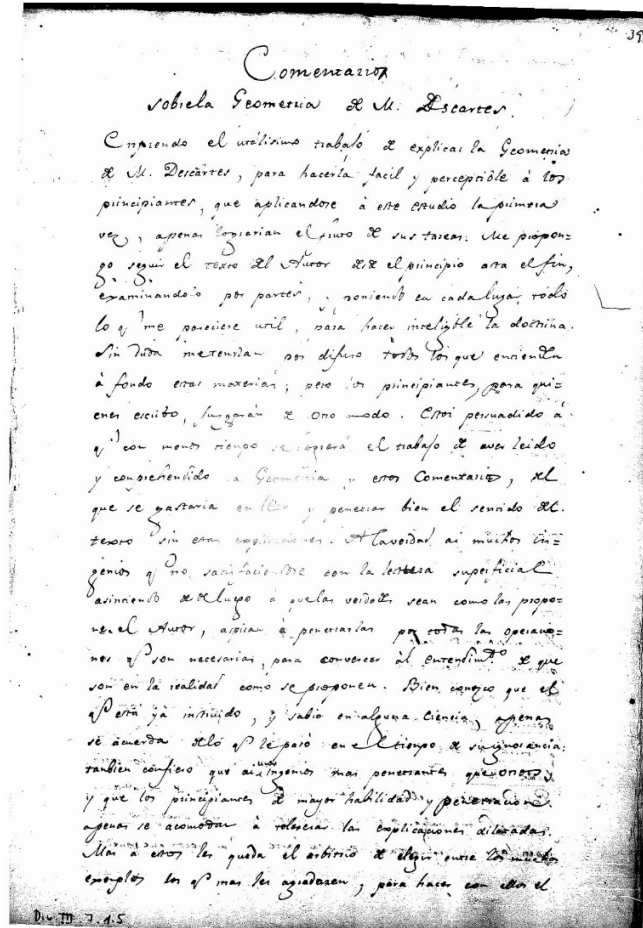 39
Comentarios
sobre la Geometria de M. Descartes.
Emprendo el utilisimo trabajo de explicar la Geometria
de M. Descartes, para hacerla facil y perceptible à los
principiantes, que aplicandose à este estudio la primera
vez, apenas lograrian el fruto de sus tareas. Me propon=
go seguir el texto del Autor dsde el principio asta el fin,
examinandolo por partes, y poniendo en cada lugar todo
lo q.e me pareciere util, para hacer inteligible la doctrina.
Sin duda me tendran por difuso todos los que entienden
à fondo estas materias; pero los principiantes, para qui=
enes escribo, juzgarán de otro modo. Estoi persuadido à
q.e con menos tiempo se logrará el trabajo de aver leido
y comprehendido la Geometria y estos Comentarios, del
que se gastaria en leer y penetrar bien el sentido del
texto sin estas explicaciones. A la verdad ai muchos in=
genios q.e no satisfaciendose con la lectura superficial
asintiendo desde luego à que las verdades sean como las propo=
ne el Autor, aspiran à penetrarlas por todas las operacio=
nes q.e son necesarias, para convencer àl entendim.to de que
son en la realidad como se proponen. Bien conozco que el
q.e está yà instruido, y sabio en alguna Ciencia, apenas
se acuerda de lo q.e le pasó en el tiempo de su ignorancia:
tanbien confieso que ai unos Ingenios mas penetrantes que otros,
y que los principiantes de mayor habilidad y penetracion
apenas se acomodan à tolerar las explicaciones dilatadas.
Mas à estos les queda el arbitrio de elegir entre los muchos
exemplos los q.e mas les agradaren, para hacer con ellos el
Div. III 7.1.5